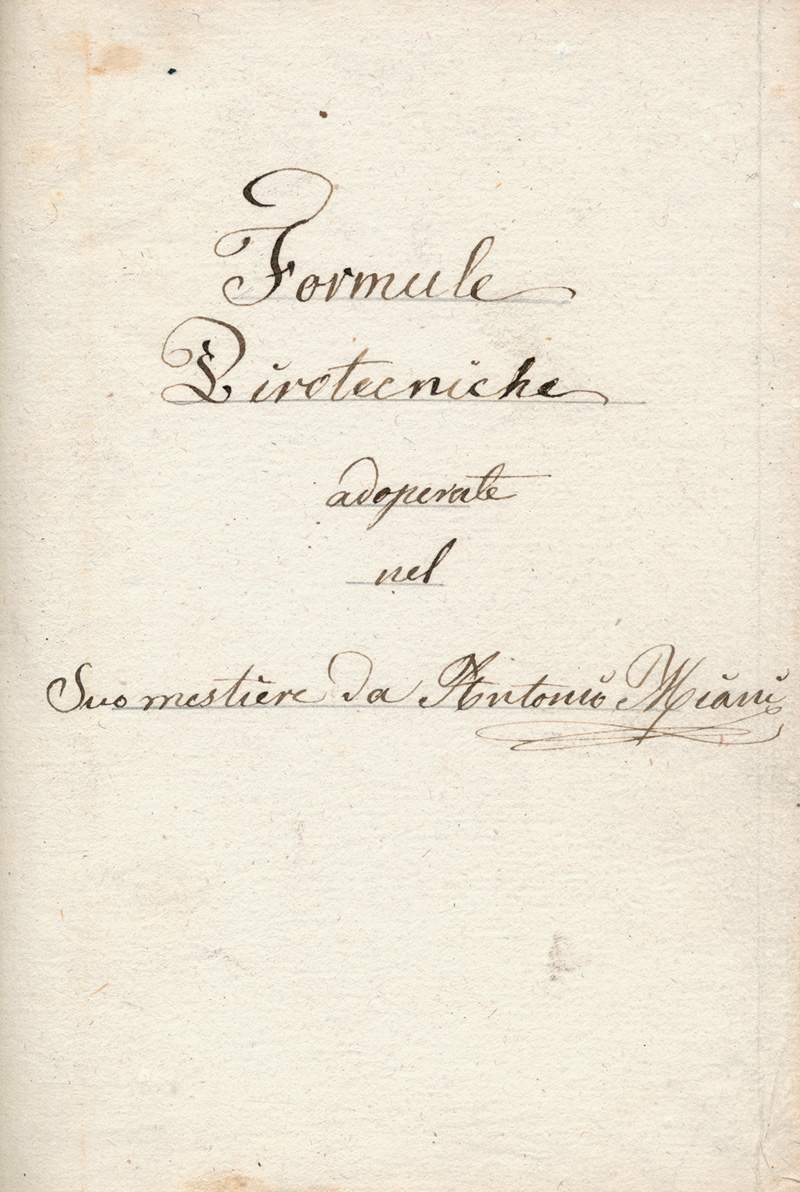 Formule
Pirotecniche
adoperate
nel
Suo mestiere da Antonio Miani